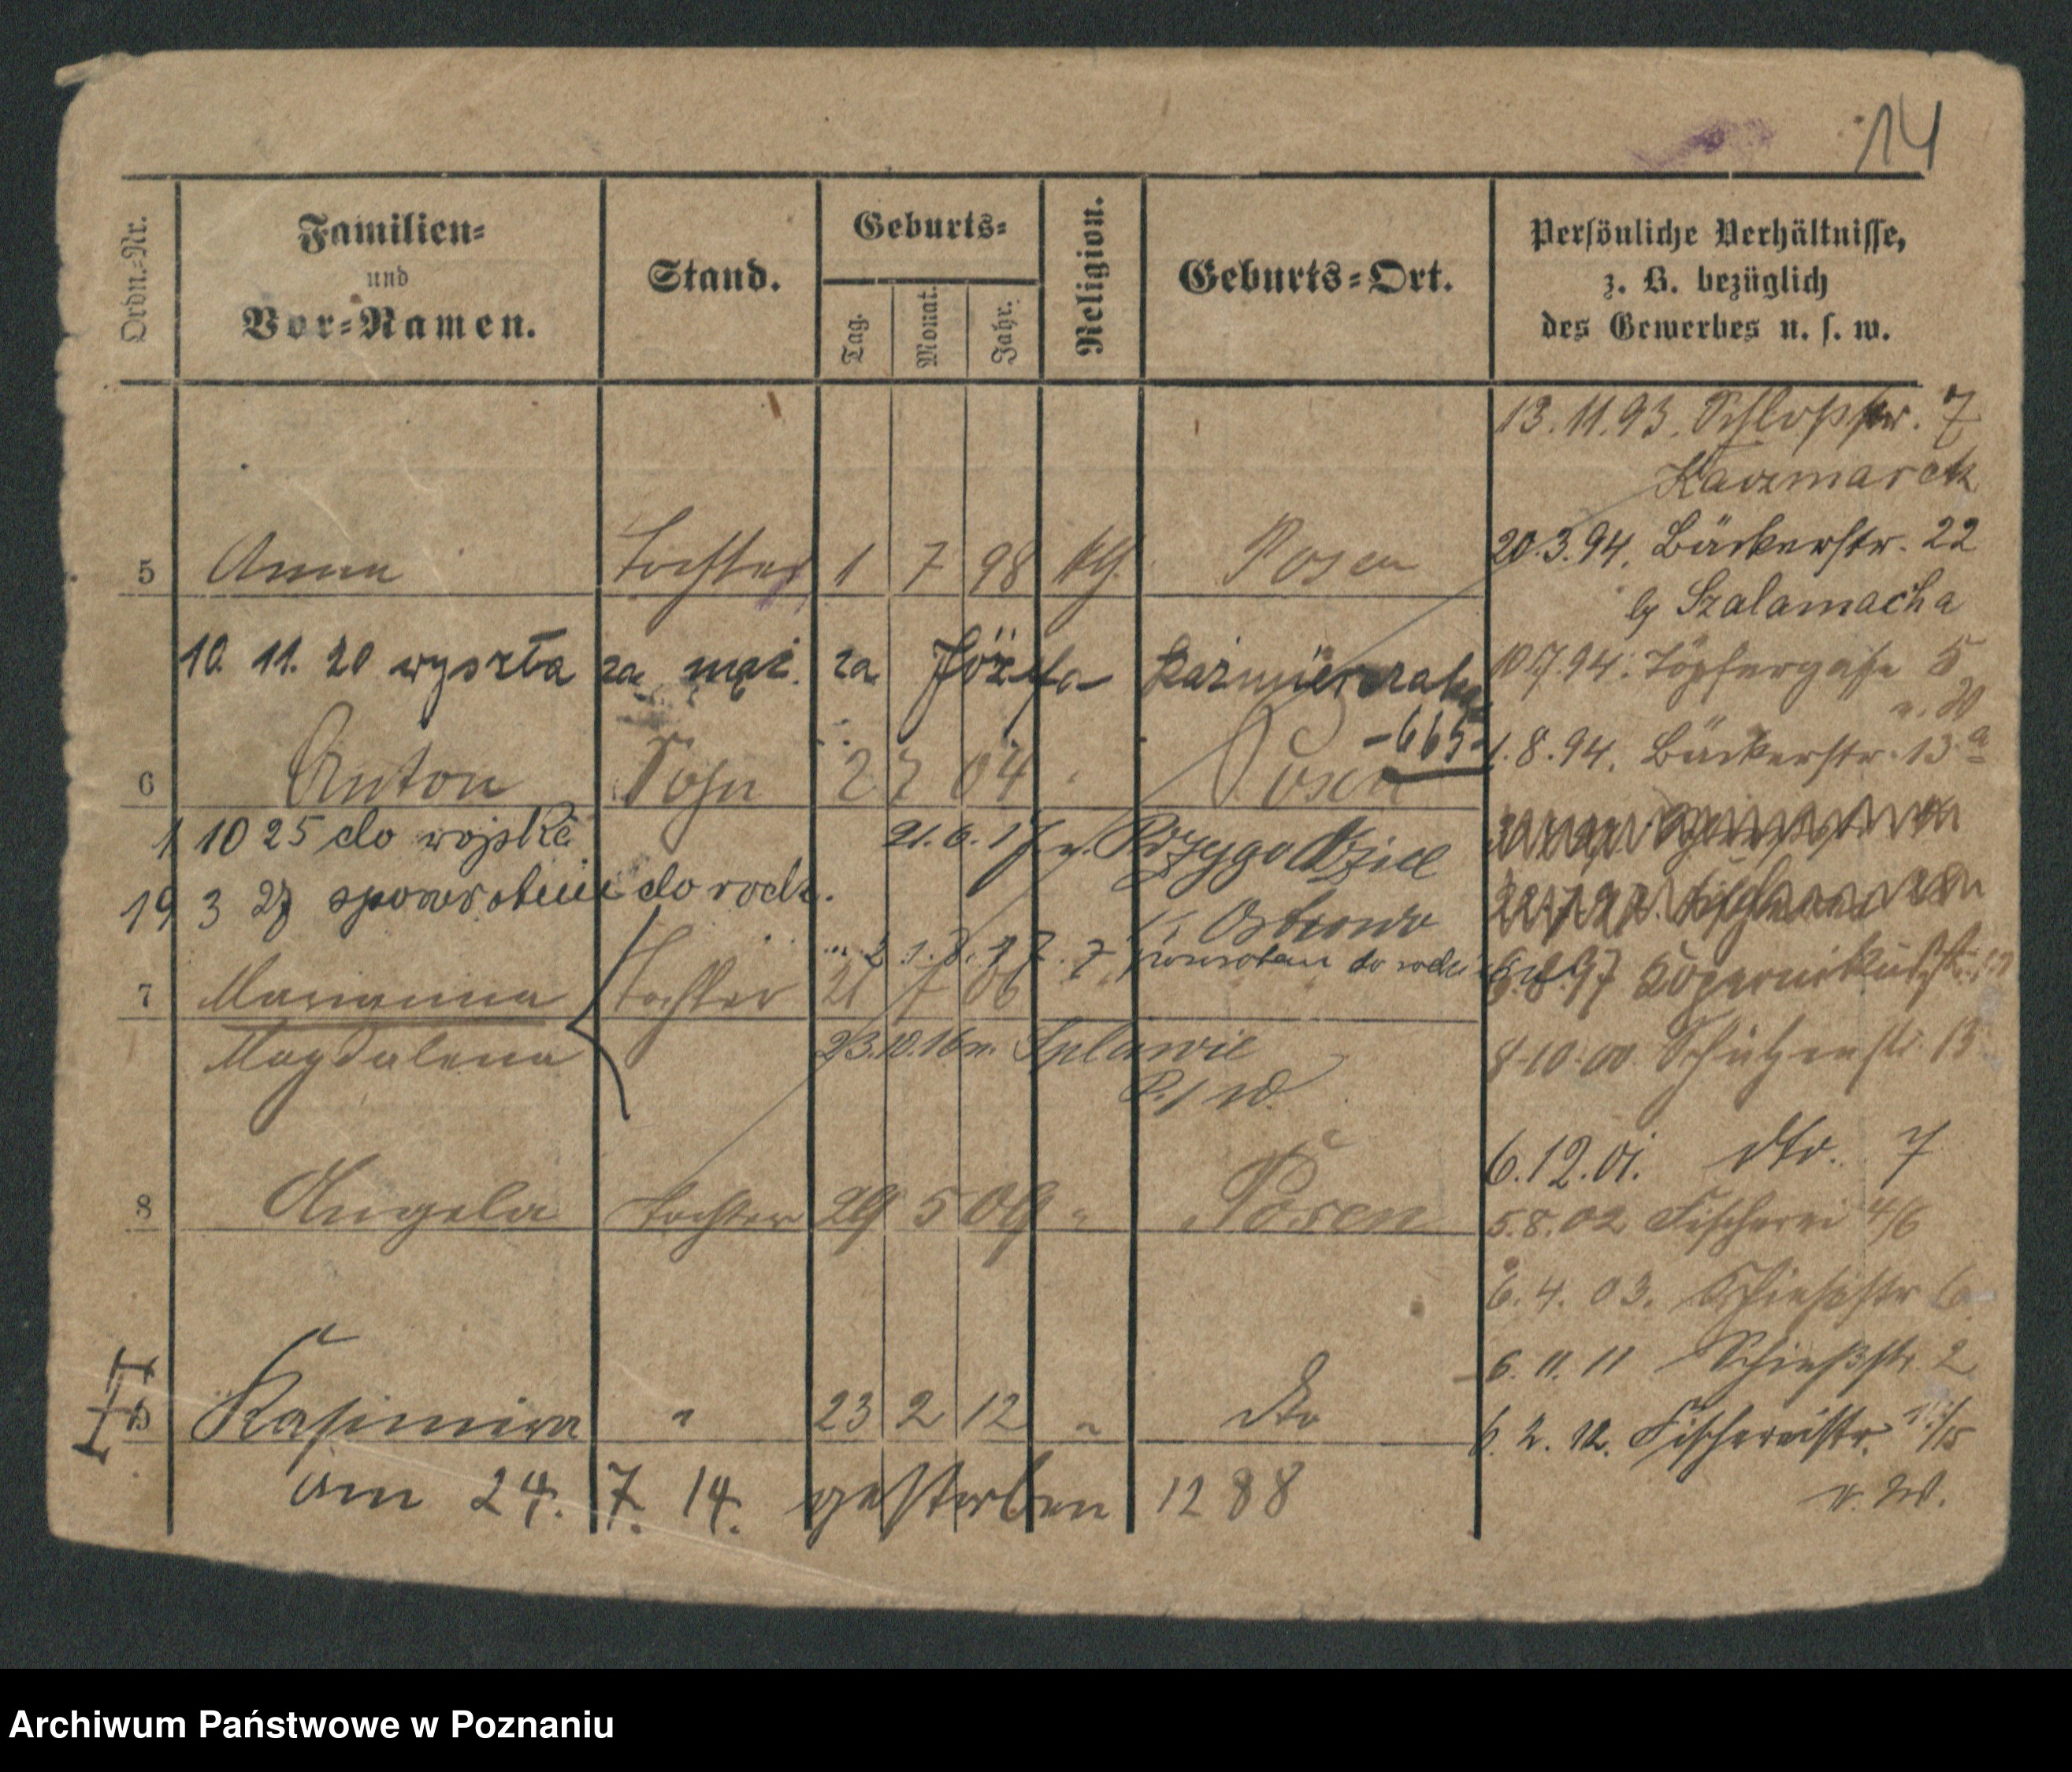 14
Ordn.-Nr.
Familien-
und
Vor-Namen.
Stand.
Geburts-
Tag.
Monat.
Jahr.
Religion.
Geburts-Ort.
Persönliche Verhältnisse,
z. B. bezüglich
des Gewerbes u. s. w.
13.11.93. Schloßstr. 7
Kaczmarek
5 Anna Tochter 1 7 98 kth. Posen
20.3.94. Bäckerstr. 22
by Szalamacha
10. 11. 20 wyszła za mąż. za Józefa Kaźmierczaka
-665-
10.7.94. Töpfergasse 5
1.8.94. Bäckerstr. 13a
6 Anton Sohn 2 7 04 " Posen
1 10 25 do wojska
21.6.17 n. Przygodzice
19 3 27 spowrotem do rodz.
K. Ostrowo
2 1. 8. 17. powrotem do rodz.
7 Marianna Tochter 21 7 06 "
Magdalena
23.10.16 n. Splawie
P./W.
8.97 Kopernikusstr.
8.10.00 Schützenstr. 13
6.12.01. dto. 7
8 Angela Tochter 29 5 09 " Posen
5.8.02 Fischerei 4/6
6. 4. 03. Schießstr 6
6. 11. 11 Schießstr. 2
Kasimira " 23 2 12 " dto
6. 2. 12. Fischereistr.
am 24. 7. 14. gestorben 1288
Archiwum Państwowe w Poznaniu